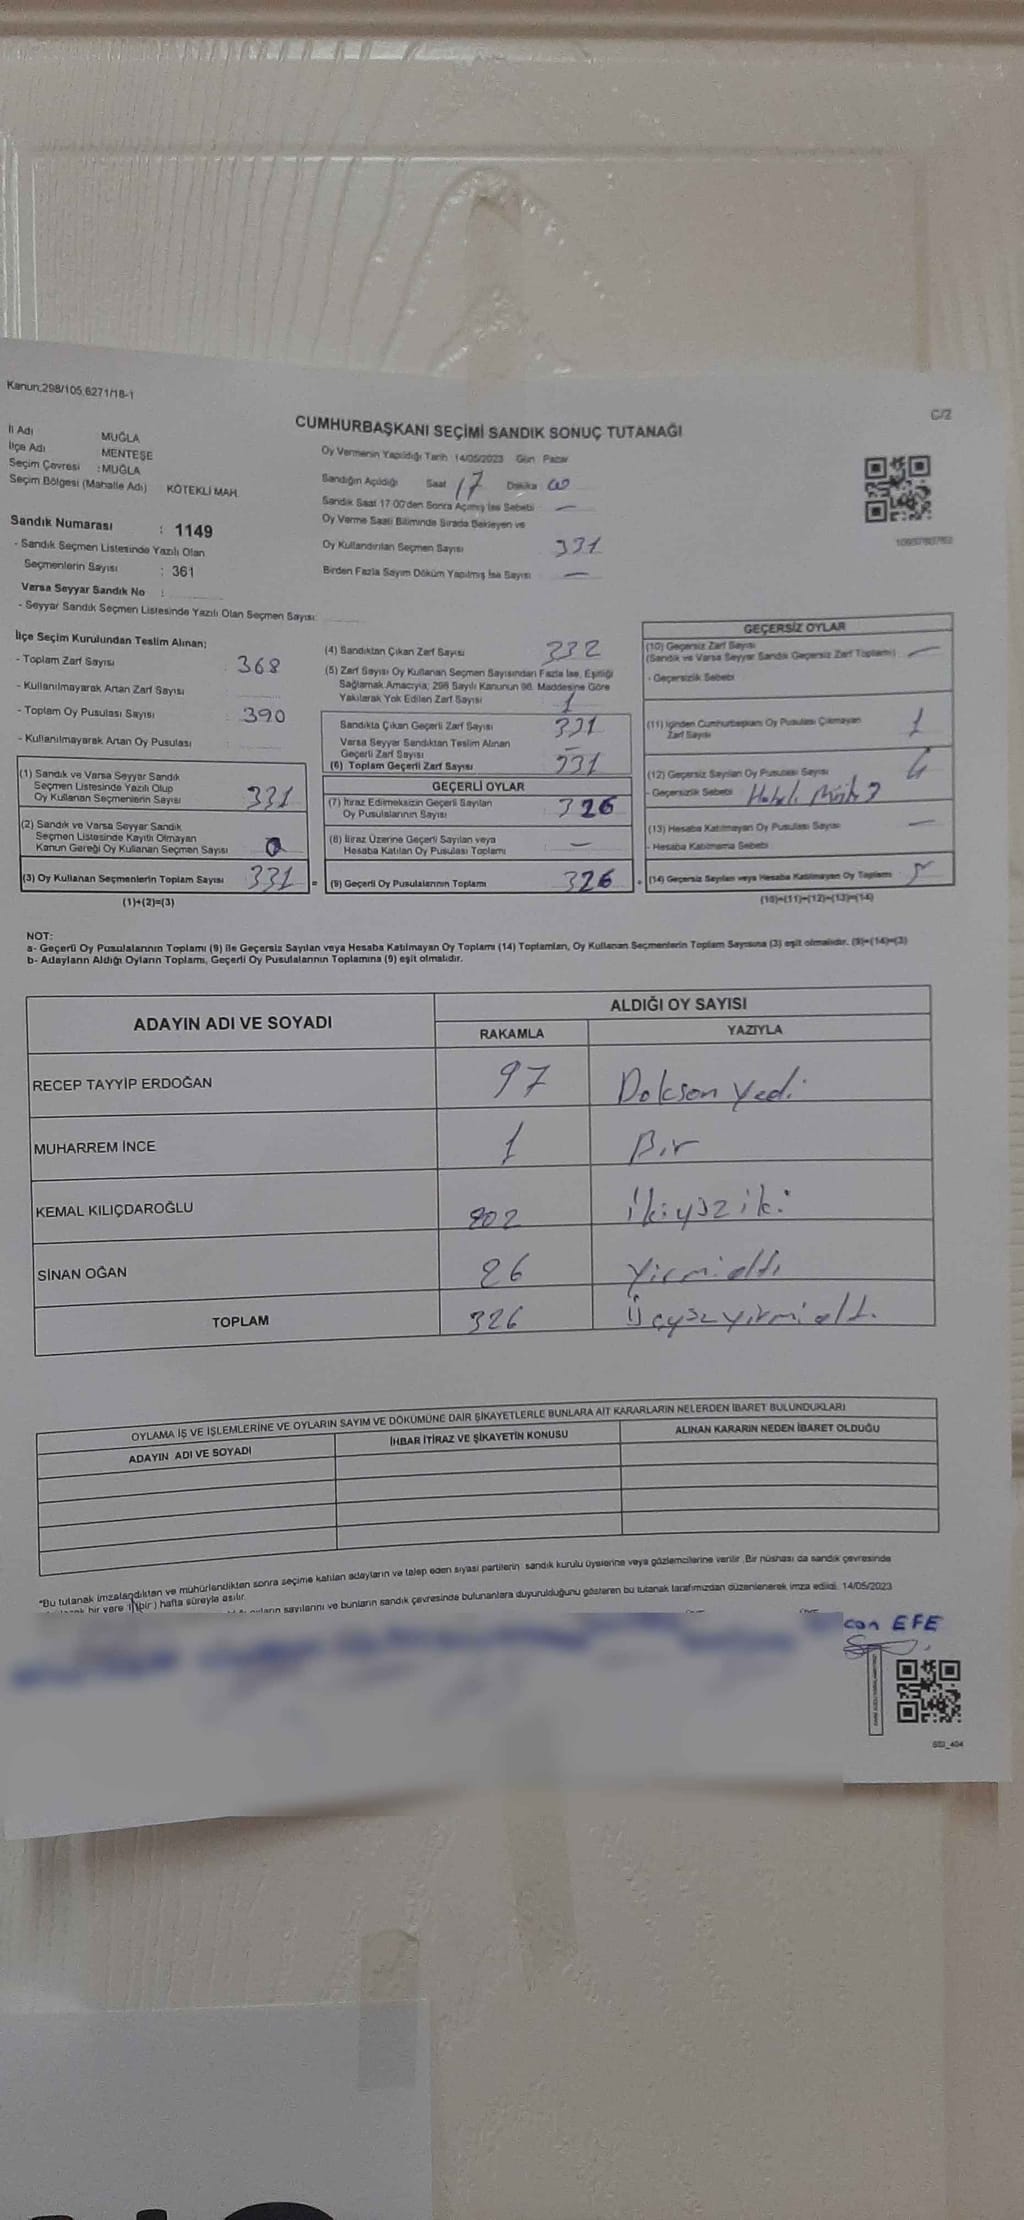 Kanun:298/105,6271/18-1
C/2
CUMHURBAŞKANI SEÇİMİ SANDIK SONUÇ TUTANAĞI
İl Adı MUĞLA
İlçe Adı MENTEŞE
Seçim Çevresi : MUĞLA
Seçim Bölgesi (Mahalle Adı) KÖTEKLİ MAH.
Sandık Numarası : 1149
- Sandık Seçmen Listesinde Yazılı Olan
Seçmenlerin Sayısı : 361
Varsa Seyyar Sandık No :
- Seyyar Sandık Seçmen Listesinde Yazılı Olan Seçmen Sayısı:
Oy Vermenin Yapıldığı Tarih 14/05/2023 Gün Pazar
Sandığın Açıldığı Saat 17 Dakika 00
Sandık Saat 17:00'den Sonra Açılmış İse Sebebi —
Oy Verme Saati Bitiminde Sırada Bekleyen ve
Oy Kullandırılan Seçmen Sayısı 331
Birden Fazla Sayım Döküm Yapılmış İse Sayısı —
İlçe Seçim Kurulundan Teslim Alınan;
- Toplam Zarf Sayısı : 368
- Kullanılmayarak Artan Zarf Sayısı
- Toplam Oy Pusulası Sayısı : 390
- Kullanılmayarak Artan Oy Pusulası :
(1) Sandık ve Varsa Seyyar Sandık
Seçmen Listesinde Yazılı Olup
Oy Kullanan Seçmenlerin Sayısı 331
(2) Sandık ve Varsa Seyyar Sandık
Seçmen Listesinde Kayıtlı Olmayan
Kanun Gereği Oy Kullanan Seçmen Sayısı 0
(3) Oy Kullanan Seçmenlerin Toplam Sayısı 331 =
(1)+(2)=(3)
(4) Sandıktan Çıkan Zarf Sayısı 332
(5) Zarf Sayısı Oy Kullanan Seçmen Sayısından Fazla İse, Eşitliği
Sağlamak Amacıyla; 298 Sayılı Kanunun 98. Maddesine Göre
Yakılarak Yok Edilen Zarf Sayısı 1
Sandıkta Çıkan Geçerli Zarf Sayısı 331
Varsa Seyyar Sandıktan Teslim Alınan
Geçerli Zarf Sayısı —
(6) Toplam Geçerli Zarf Sayısı 331
GEÇERLİ OYLAR
(7) İtiraz Edilmeksizin Geçerli Sayılan
Oy Pusulalarının Sayısı 326
(8) İtiraz Üzerine Geçerli Sayılan veya
Hesaba Katılan Oy Pusulası Toplamı —
(9) Geçerli Oy Pusulalarının Toplamı 326 +
GEÇERSİZ OYLAR
(10) Geçersiz Zarf Sayısı
(Sandık ve Varsa Seyyar Sandık Geçersiz Zarf Toplamı) —
- Geçersizlik Sebebi
(11) İçinden Cumhurbaşkanı Oy Pusulası Çıkmayan
Zarf Sayısı 1
(12) Geçersiz Sayılan Oy Pusulası Sayısı 4
- Geçersizlik Sebebi Hatalı
(13) Hesaba Katılmayan Oy Pusulası Sayısı —
- Hesaba Katılmama Sebebi
(14) Geçersiz Sayılan veya Hesaba Katılmayan Oy Toplamı 5
(10)+(11)+(12)+(13)=(14)
NOT:
a- Geçerli Oy Pusulalarının Toplamı (9) ile Geçersiz Sayılan veya Hesaba Katılmayan Oy Toplamı (14) Toplamları, Oy Kullanan Seçmenlerin Toplam Sayısına (3) eşit olmalıdır. (9)+(14)=(3)
b- Adayların Aldığı Oyların Toplamı, Geçerli Oy Pusulalarının Toplamına (9) eşit olmalıdır.
ADAYIN ADI VE SOYADI
ALDIĞI OY SAYISI
RAKAMLA YAZIYLA
RECEP TAYYİP ERDOĞAN 97 Doksan yedi
MUHARREM İNCE 1 Bir
KEMAL KILIÇDAROĞLU 202 ikiyüz iki
SİNAN OĞAN 26 Yirmialtı
TOPLAM 326 Üçyüzyirmialtı
OYLAMA İŞ VE İŞLEMLERİNE VE OYLARIN SAYIM VE DÖKÜMÜNE DAİR ŞİKAYETLERLE BUNLARA AİT KARARLARIN NELERDEN İBARET BULUNDUKLARI
ADAYIN ADI VE SOYADI İHBAR İTİRAZ VE ŞİKAYETİN KONUSU ALINAN KARARIN NEDEN İBARET OLDUĞU
"Bu tutanak imzalandıktan ve mühürlendikten sonra seçime katılan adayların ve talep eden siyasi partilerin sandık kurulu üyelerine veya gözlemcilerine verilir. Bir nüshası da sandık çevresinde
bir yere 1 (bir) hafta süreyle asılır.
oyların sayılarını ve bunların sandık çevresinde bulunanlara duyurulduğunu gösteren bu tutanak tarafımızdan düzenlenerek imza edildi. 14/05/2023
can EFE